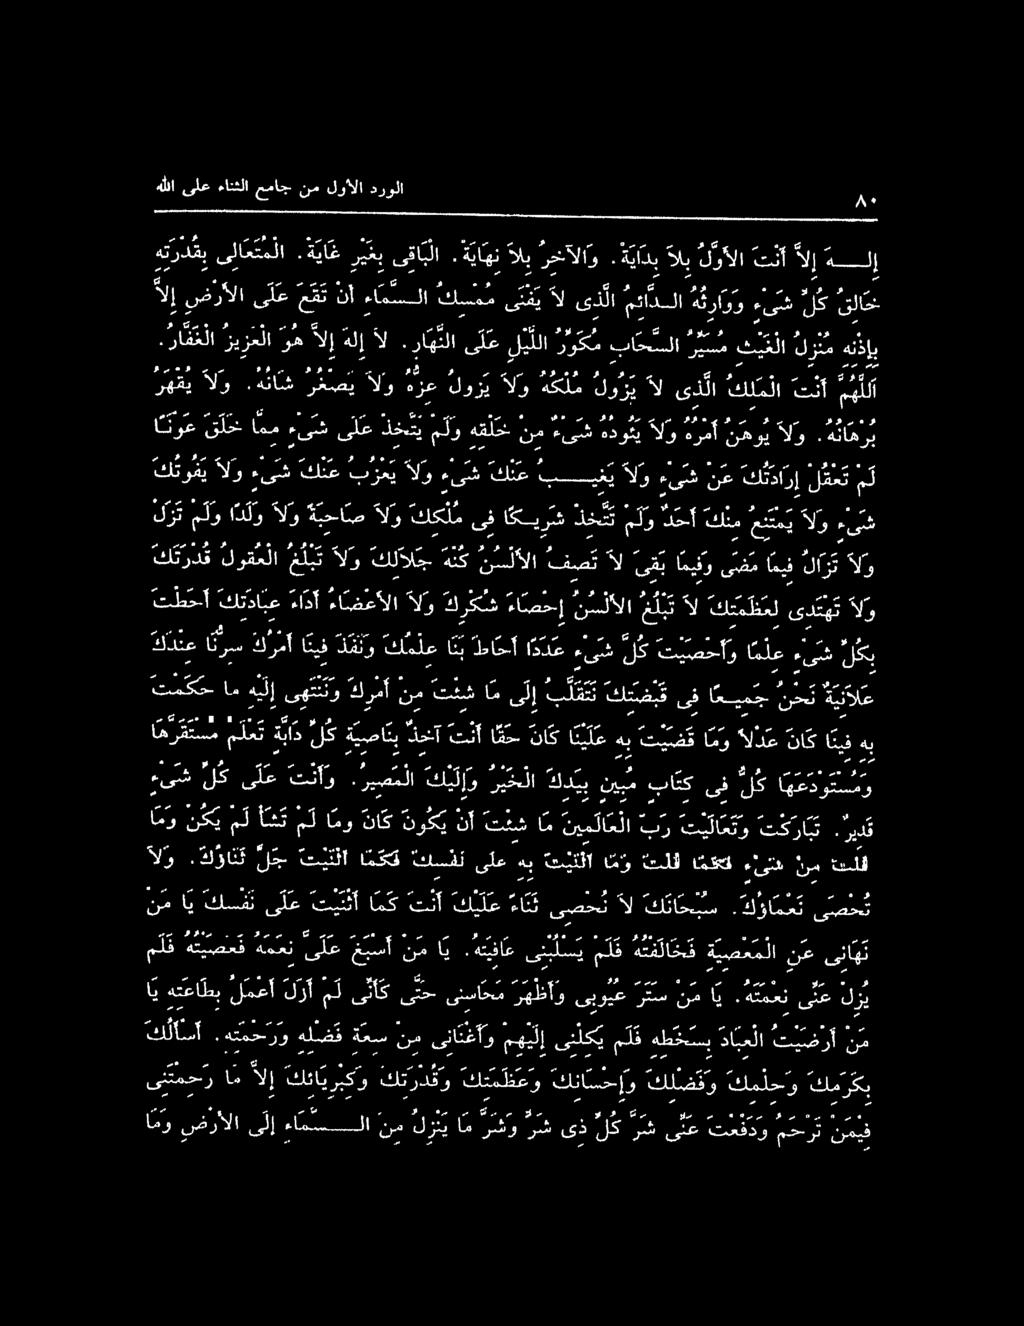 ٨٠ الورد الأول من جامع الثناء على الله
إلـــه إلاَّ أَنْتَ الأوَّلُ بِلاَ بِدَايَةْ. وَالآخِرُ بِلاَ نِهَايَةْ. الْبَاقِى بِغَيْرِ غَايَةْ. الْمُتَعَالِى بِقُدْرَتِهِ
خَالِقُ كُلِّ شَىْءٍ وَوَارِثُهُ الـدَّائِمُ الَّذِى لاَ يَفْنَى مُمْسِكُ الـسَّمَاءِ أَنْ تَقَعَ عَلَى الأَرْضِ إلاَّ
بِإِذْنِهِ مُنْزِلُ الْغَيْثِ مُسَيِّرُ السَّحَابِ مُكَوِّرُ اللَّيْلِ عَلَى النَّهَارِ. لاَ إِلهَ إِلاَّ هُوَ الْعَزِيزُ الْغَفَّارُ.
اَللَّهُمَّ أَنْتَ الْمَلِكُ الَّذِى لاَ يَزُولُ مُلْكُهُ وَلاَ يَزُولُ عِزُّهُ وَلاَ يَصْغُرُ شَانُهُ. وَلاَ يُقْهَرُ
بُرْهَانُهُ. وَلاَ يُوهَنُ أَمْرُهُ وَلاَ يَئُودُهُ شَىْءٌ مِنْ خَلْقِهِ وَلَمْ يَتَّخِذْ عَلَى شَىْءٍ مِمَّا خَلَقَ عَوْنًا
لَمْ تَعْقُلْ إِرَادَتُكَ عَنْ شَىْءٍ وَلاَ يَغِيـــبُ عَنْكَ شَىْءٍ وَلاَ يَعْزُبُ عَنْكَ شَىْءٍ وَلاَ يَفُوتُكَ
شَىْءٍ وَلاَ يَمْتَنِعُ مِنْكَ أَحَدٌ وَلَمْ تَتَّخِذْ شَرِيـكًا فِى مُلْكِكَ وَلاَ صَاحِبَةً وَلاَ وَلَدًا وَلَمْ تَزَلْ
وَلاَ تَزَالُ فِيمَا مَضَى وَفِيمَا بَقِىَ لاَ تَصِفُ الأَلْسُنُ كُنْهَ جَلاَلِكَ وَلاَ تَبْلُغُ الْعُقُولُ قُدْرَتَكَ
وَلاَ تَهْتَدِى لِعَظَمَتِكَ لاَ تَبْلُغُ الأَلْسُنُ إِحْصَاءَ شُكْرِكَ وَلاَ الأَعْضَاءُ أَدَاءَ عِبَادَتِكَ أَحَطْتَ
بِكُلِّ شَىْءٍ عِلْمًا وَأَحْصَيْتَ كُلَّ شَىْءٍ عَدَدًا أَحَاطَ بِنَا عِلْمُكَ وَنَفَذَ فِينَا أَمْرُكَ سِرُّنَا عِنْدَكَ
عَلاَنِيَةٌ نَحْنُ جَمِيـعًا فِى قَبْضَتِكَ نَتَقَلَّبُ إِلَى مَا شِئْتَ مِنْ أَمْرِكَ وَنَنْتَهِى إِلَيْهِ مَا حَكَمْتَ
بِهِ فِينَا كَانَ عَدْلاً وَمَا قَضَيْتَ بِهِ عَلَيْنَا كَانَ حَقًا أَنْتَ آخِذٌ بِنَاصِيَةِ كُلِّ دَابَّةٍ تَعْلَمُ مُسْتَقَرَّهَا
وَمُسْتَوْدَعَهَا كُلٌّ فِى كِتَابٍ مُبِينٍ بِيَدِكَ الْخَيْرُ وَإِلَيْكَ الْمَصِيرُ. وَأَنْتَ عَلَى كُلِّ شَىْءٍ
قَدِيرٌ. تَبَارَكْتَ وَتَعَالَيْتَ رَبَّ الْعَالَمِينَ مَا شِئْتَ أَنْ يَكُونَ كَانَ وَمَا لَمْ تَشَأْ لَمْ يَكُنْ وَمَا
قُلْتَ مِنْ شَىْءٍ فَكَمَا قُلْتَ وَمَا أَثْنَيْتَ بِهِ عَلَى نَفْسِكَ فَكَمَا أَثْنَيْتَ جَلَّ ثَنَاؤُكَ. وَلاَ
تُحْصَى نَعْمَاؤُكَ. سُبْحَانَكَ لاَ نُحْصِى ثَنَاءً عَلَيْكَ أَنْتَ كَمَا أَثْنَيْتَ عَلَى نَفْسِكَ يَا مَنْ
نَهَانِى عَنِ الْمَعْصِيَةِ فَخَالَفْتُهُ فَلَمْ يَسْلُبْنِى عَافِيَتَهُ. يَا مَنْ أَسْبَغَ عَلَىَّ نِعَمَهُ فَعَصَيْتُهُ فَلَم
يُزِلْ عَنِّى نِعْمَتَهُ. يَا مَنْ سَتَرَ عُيُوبِى وَأَظْهَرَ مَحَاسِنِى حَتَّى كَأَنِّى لَمْ أَزَلْ أَعْمَلُ بِطَاعَتِهِ يَا
مَنْ أَرْضَيْتُ الْعِبَادَ بِسَخَطِهِ فَلَم يَكِلْنِى إِلَيْهِمْ وَأَغْنَانِى مِنْ سِعَةِ فَضْلِهِ وَرَحْمَتِهِ. أَسْأَلُكَ
بِكَرَمِكَ وَحِلْمِكَ وَفَضْلِكَ وَإِحْسَانِكَ وَعَظَمَتِكَ وَقُدْرَتِكَ وَكِبْرِيَائِكَ إِلاَّ مَا رَحِمْتَنِى
فِيْمَنْ تَرْحَمُ وَدَفَعْتَ عَنِّى شَرَّ كُلِّ ذِى شَرٍّ وَشَرَّ مَا يَنْزِلُ مِنَ الـــسَّمَاءِ إِلَى الأَرْضِ وَمَا